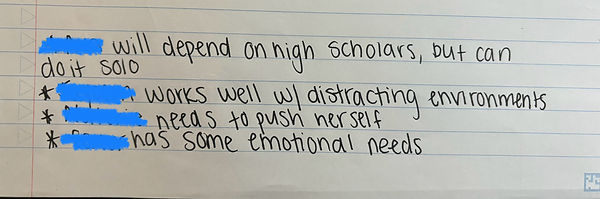 will depend on high scholars, but can
do it solo
* works well w/ distracting environments
* needs to push herself
* has some emotional needs